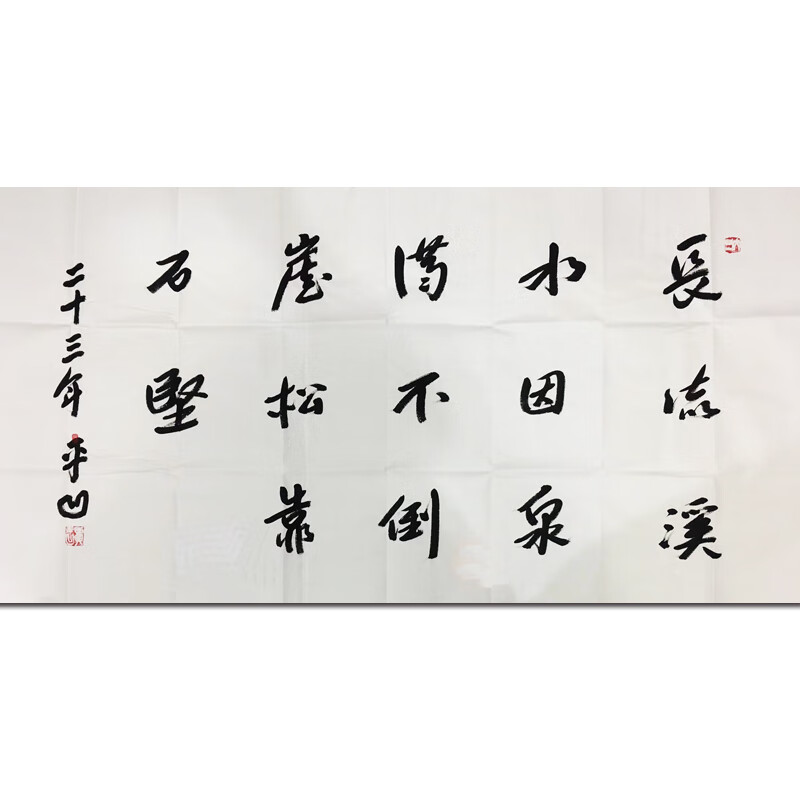 長流溪
水因泉
满不倒
崖松靠
石堅
二十三年 平凹